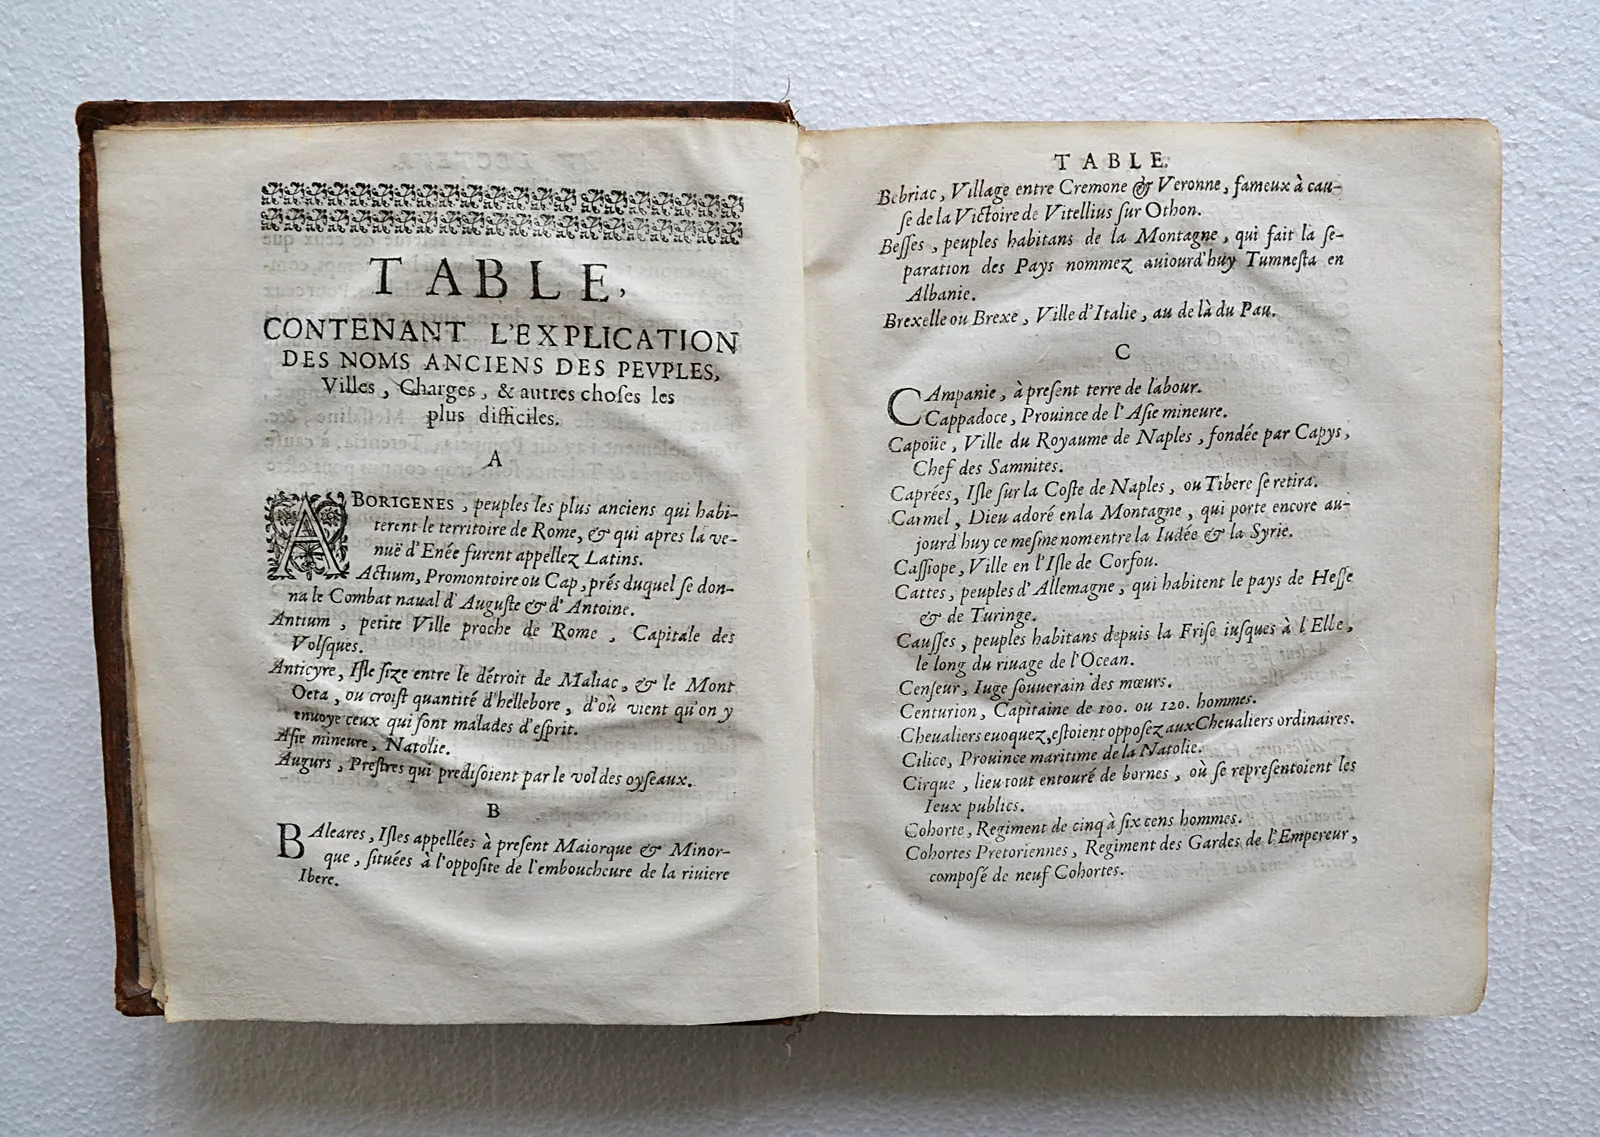 TABLE,
CONTENANT L'EXPLICATION
DES NOMS ANCIENS DES PEVPLES,
Villes, Charges, & autres choſes les
plus difficiles.
A
ABORIGENES, peuples les plus anciens qui habi-
terent le territoire de Rome, & qui apres la ve-
nuë d'Enée furent appellez Latins.
Actium, Promontoire ou Cap, prés duquel ſe don-
na le Combat naual d'Auguſte & d'Antoine.
Antium, petite Ville proche de Rome, Capitale des
Volſques.
Anticyre, Iſle ſize entre le détroit de Maliac, & le Mont
Oeta, ou croiſt quantité d'hellebore, d'où vient qu'on y
enuoye ceux qui ſont malades d'eſprit.
Aſie mineure, Natolie.
Augurs, Preſtres qui prediſoient par le vol des oyſeaux.
B
BAleares, Iſles appellées à preſent Maiorque & Minor-
que, ſituées à l'oppoſite de l'emboucheure de la riuiere
Ibere.
TABLE.
Bebriac, Village entre Cremone & Veronne, fameux à cau-
ſe de la Victoire de Vitellius ſur Othon.
Beſſes, peuples habitans de la Montagne, qui fait la ſe-
paration des Pays nommez auiourd'huy Tumneſta en
Albanie.
Brexelle ou Brexe, Ville d'Italie, au de là du Pau.
C
CAmpanie, à preſent terre de labour.
Cappadoce, Prouince de l'Aſie mineure.
Capoüe, Ville du Royaume de Naples, fondée par Capys,
Chef des Samnites.
Caprées, Iſle ſur la Coſte de Naples, ou Tibere ſe retira.
Carmel, Dieu adoré en la Montagne, qui porte encore au-
jourd'huy ce meſme nom entre la Iudée & la Syrie.
Caſſiope, Ville en l'Iſle de Corfou.
Cattes, peuples d'Allemagne, qui habitent le pays de Heſſe
& de Turinge.
Cauſſes, peuples habitans depuis la Friſe iuſques à l'Elle,
le long du riuage de l'Ocean.
Cenſeur, Iuge ſouuerain des mœurs.
Centurion, Capitaine de 100. ou 120. hommes.
Cheualiers euoquez, eſtoient oppoſez aux Cheualiers ordinaires.
Cilice, Prouince maritime de la Natolie.
Cirque, lieu tout entouré de bornes, où ſe repreſentoient les
Ieux publics.
Cohorte, Regiment de cinq à ſix cens hommes.
Cohortes Pretoriennes, Regiment des Gardes de l'Empereur,
compoſé de neuf Cohortes.